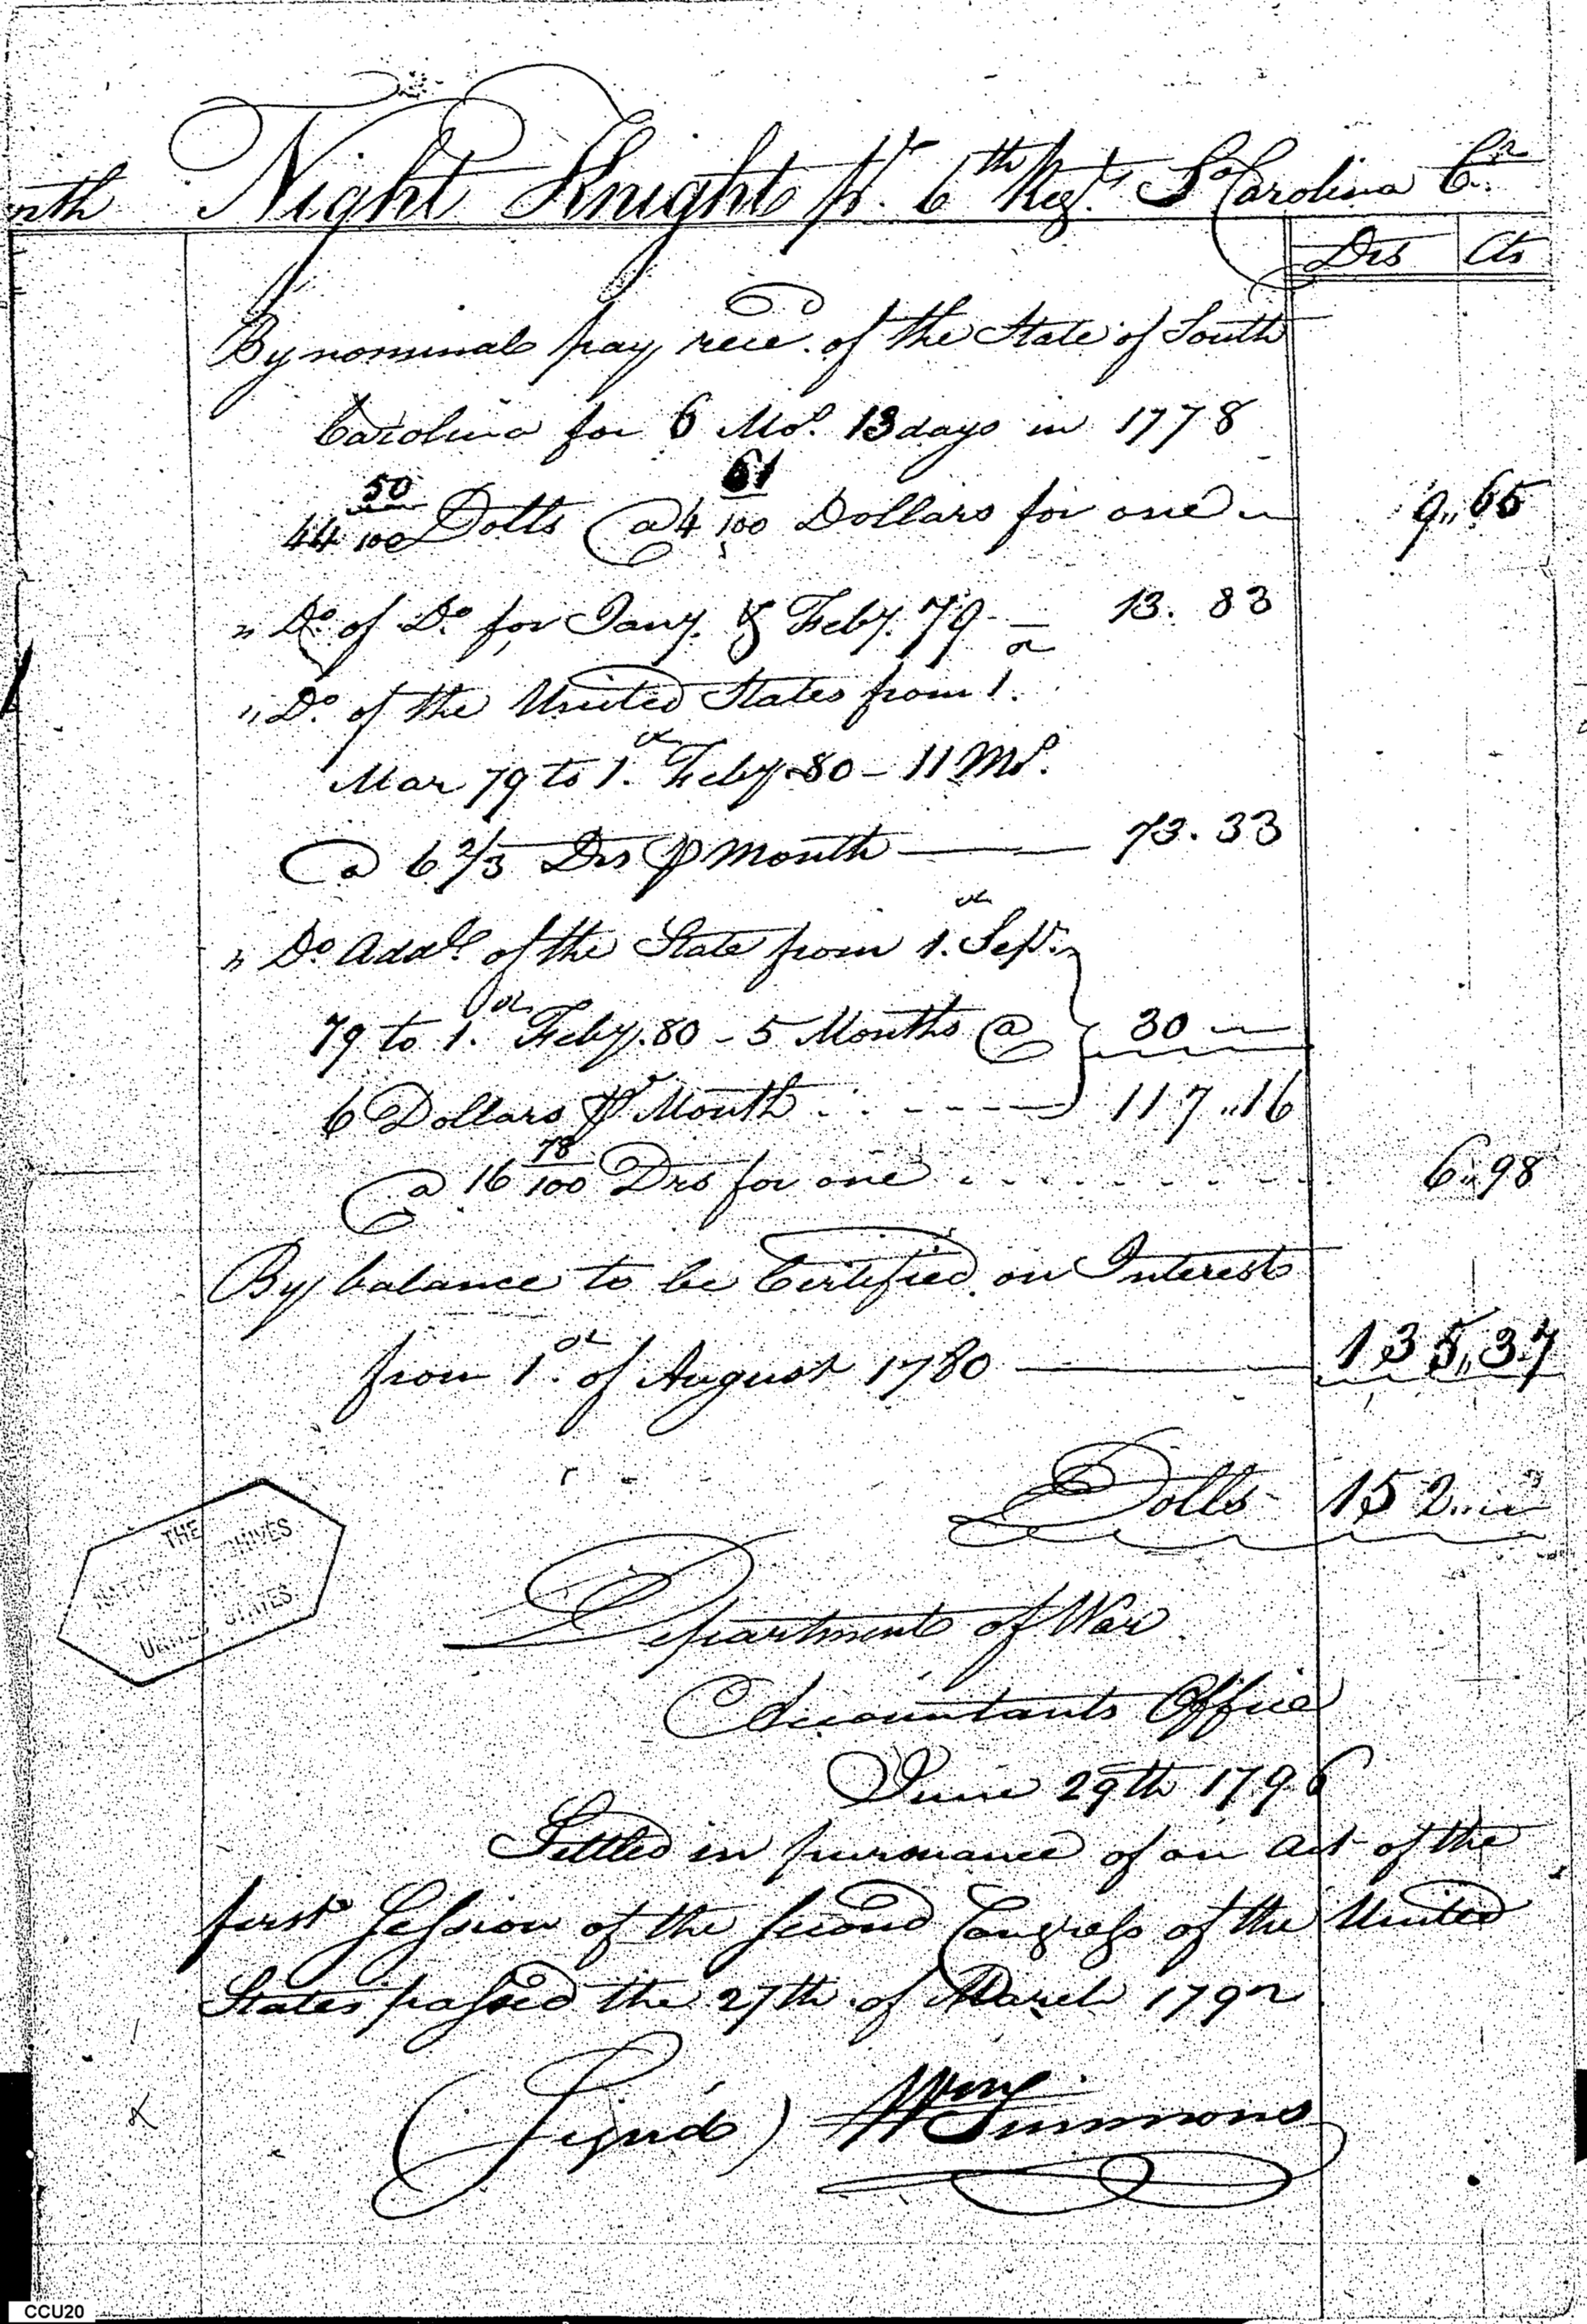 nth Night Knight pr. 6th Regt. So Carolina Cr.
Drs Cts
By nominal pay rece. of the State of South
Carolina for 6 Mos. 13 days in 1778
44 50/100 Dolls @ 4 61/100 Dollars for one 9,,65
" Do. of Do. for Jany. & Feby. 79 - 13. 83
" Do. of the United States from 1.
Mar 79 to 1st. Feby. 80 - 11 Mos.
@ 6 2/3 Drs P Month 73. 33
" Do. Addl. of the State from 1st. Sepr.
79 to 1st. Feby. 80 - 5 Months @ 30
6 Dollars Pr Month 117,,16
@ 16 78/100 Drs for one 6,,98
By balance to be Certified on Interest
from 1st. of August 1780 135,,37
Dolls 152
THE
NATIONAL ARCHIVES
UNITED STATES
Department of War
Accountants Office
June 29th 1796
Settled in pursuance of an act of the
first Session of the second Congress of the United
States passed the 27th of March 1792
(Signd) Wm Simmons
CCU20